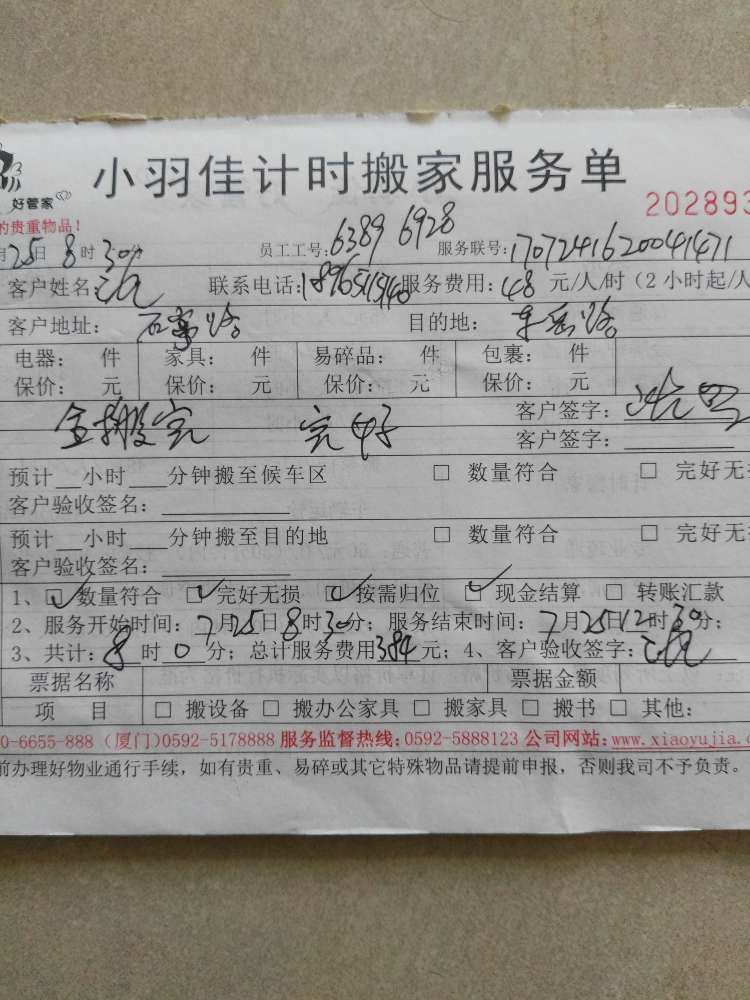 小羽佳计时搬家服务单
好管家
202893
的贵重物品！
月25日 8时30分 员工工号：6389 6928 服务联号：1707241620041471
客户姓名： 联系电话： 服务费用：48 元/人/时（2小时起/人
客户地址： 目的地：
电器： 件 家具： 件 易碎品： 件 包裹： 件
保价： 元 保价： 元 保价： 元 保价： 元
全搬完 完好 客户签字：
客户签字：
预计__小时___分钟搬至候车区 □ 数量符合 □ 完好无
客户验收签名：
预计__小时___分钟搬至目的地 □ 数量符合 □ 完好无
客户验收签名：
1、☑数量符合 ☑完好无损 ☑按需归位 ☑现金结算 □ 转账汇款
2、服务开始时间：7月25日8时30分；服务结束时间：7月25日12时30分；
3、共计：8时0分；总计服务费用384元；4、客户验收签字：
票据名称 票据金额
项 目 □ 搬设备 □ 搬办公家具 □ 搬家具 □ 搬书 □ 其他：
0-6655-888（厦门）0592-5178888 服务监督热线：0592-5888123 公司网站：www.xiaoyujia.c
前办理好物业通行手续，如有贵重、易碎或其它特殊物品请提前申报，否则我司不予负责。